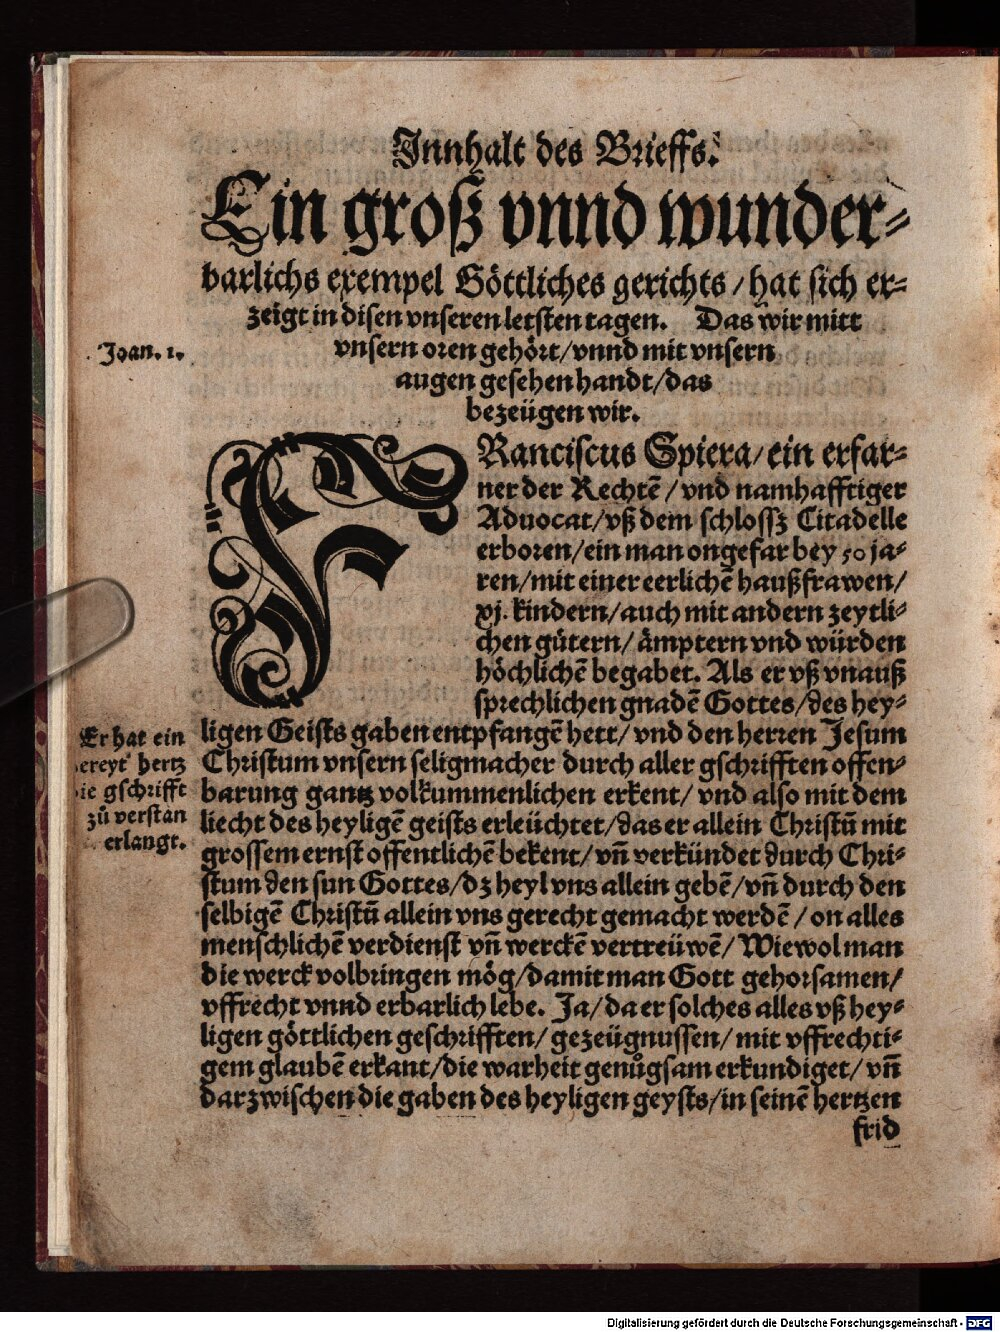 Innhalt des Brieffs.
Ein groß vnnd wunder⸗
barlichs exempel Göttliches gerichts / hat sich er⸗
zeigt in disen vnseren letsten tagen. Das wir mitt
Joan. 1.
vnsern oren gehört / vnnd mit vnsern
augen gesehen handt / das
bezeügen wir.
FRanciscus Spiera / ein erfar⸗
ner der Rechtē / vnd namhafftiger
Aduocat / vß dem schlossz Citadelle
erboren / ein man ongefar bey 50 ja⸗
ren / mit einer eerlichē haußfrawen /
xj. kindern / auch mit andern zeytli⸗
chen gütern / ämptern vnd würden
höchlichē begabet. Als er vß vnauß
sprechlichen gnadē Gottes / des hey⸗
ligen Geists gaben entpfangē hett / vnd den herren Jesum
Christum vnsern seligmacher durch aller gschrifften offen⸗
barung gantz volkummenlichen erkent / vnd also mit dem
liecht des heyligē geists erleüchtet / das er allein Christū mit
grossem ernst offentlichē bekent / vn̄ verkündet durch Chri⸗
stum den sun Gottes / dz heyl vns allein gebē / vn̄ durch den
selbigē Christū allein vns gerecht gemacht werdē / on alles
menschlichē verdienst vn̄ werckē vertreüwē / Wiewol man
die werck volbringen mög / damit man Gott gehorsamen /
vffrecht vnnd erbarlich lebe. Ja / da er solches alles vß hey⸗
ligen göttlichen geschrifften / gezeügnussen / mit vffrechti⸗
gem glaubē erkant / die warheit genůgsam erkundiget / vn̄
darzwischen die gaben des heyligen geysts / in seinē hertzen
frid
Er hat ein
ereyt hertz
ie gschrifft
zů verstan
erlangt.
Digitalisierung gefördert durch die Deutsche Forschungsgemeinschaft - DFG